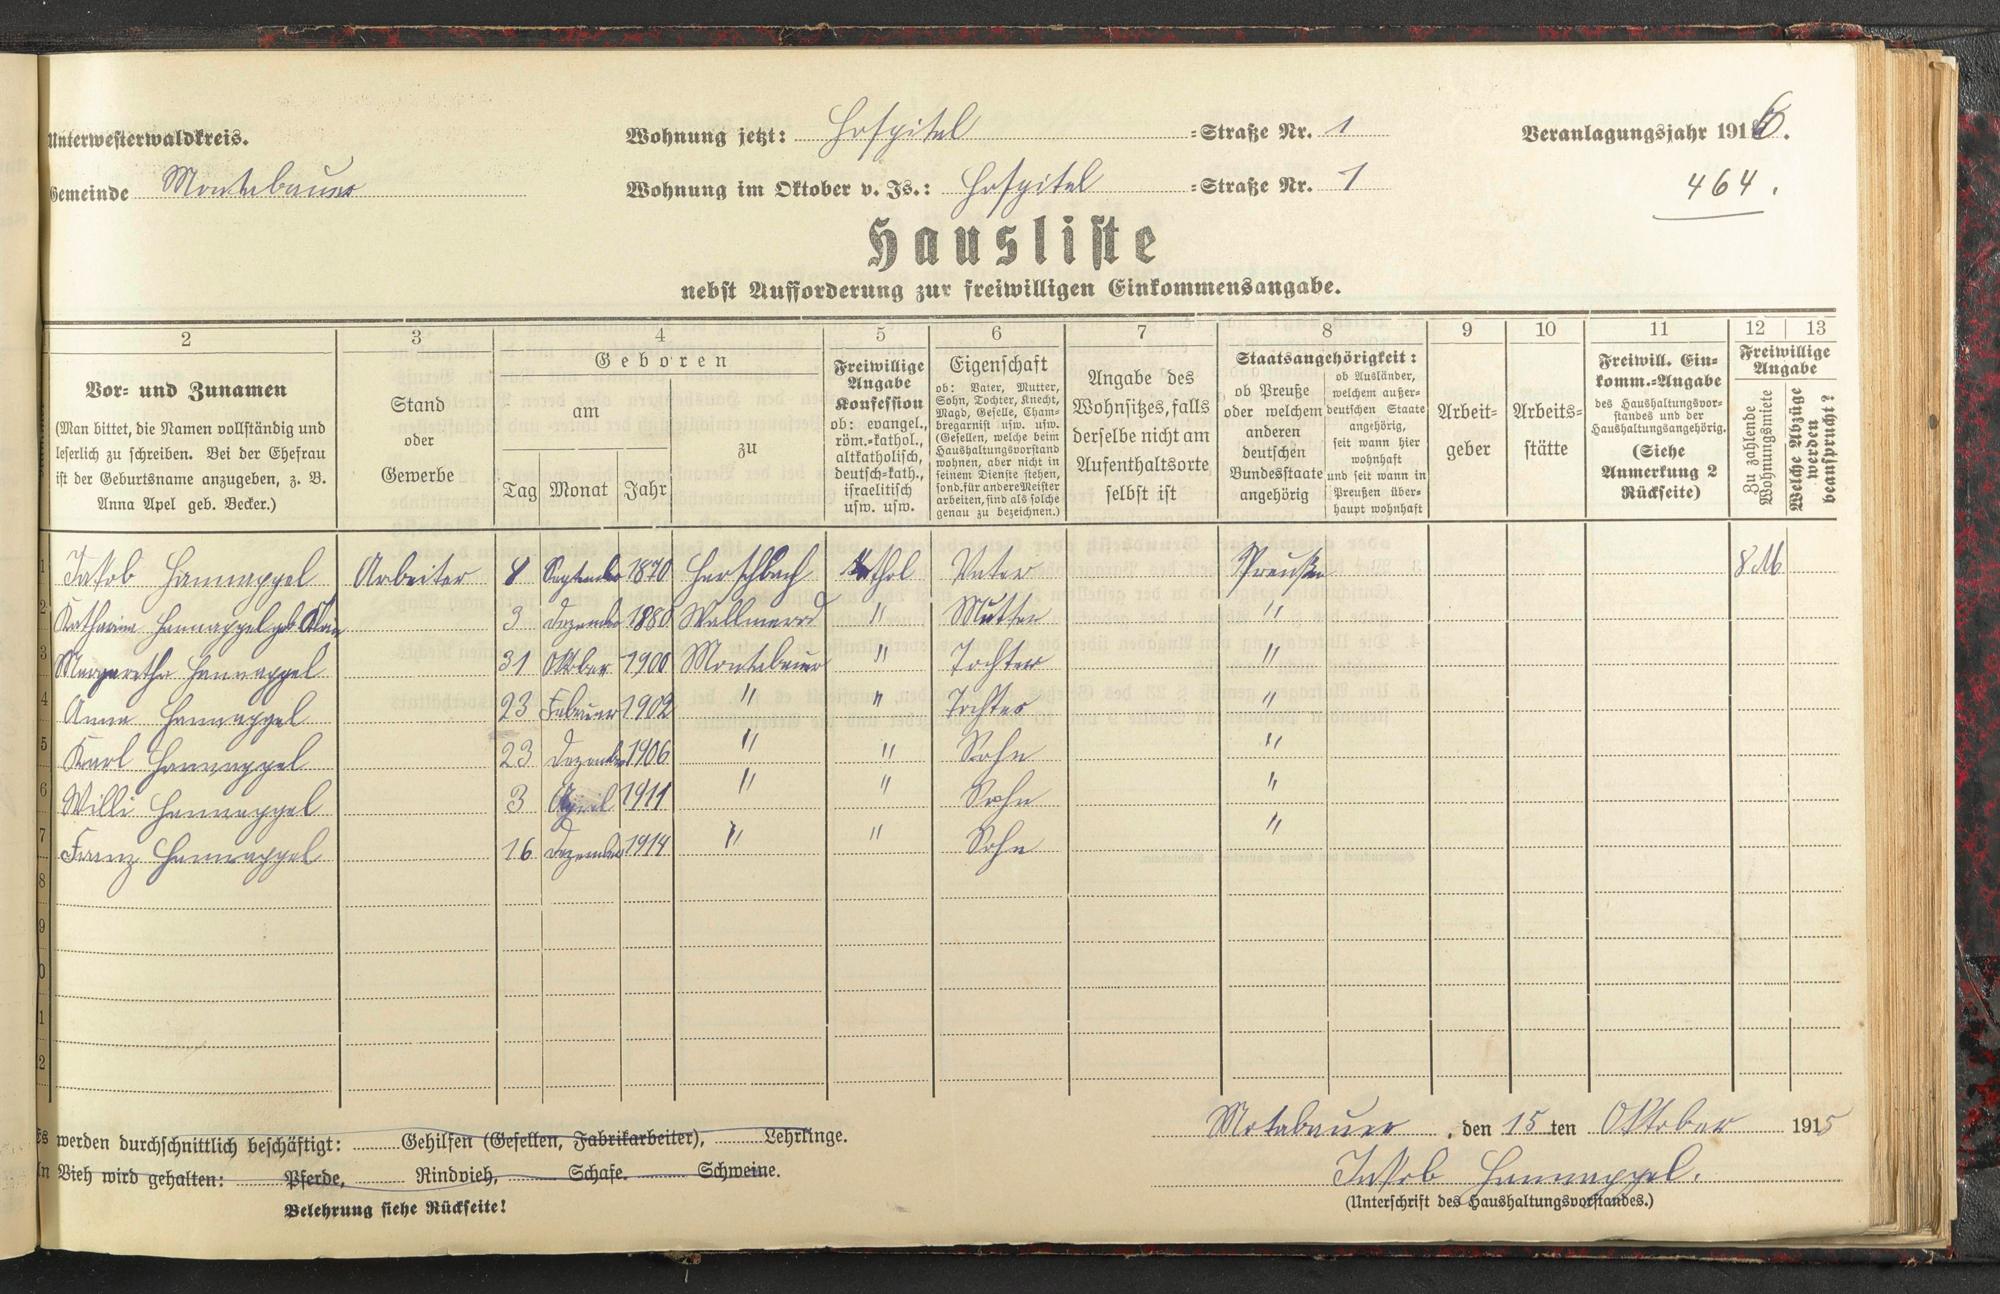 Unterwesterwaldkreis.
Wohnung jetzt: Hospital =Straße Nr. 1
Veranlagungsjahr 1916.
Gemeinde Montabauer
Wohnung im Oktober v. Js.: Hospital =Straße Nr. 1
464.
Hausliste
nebst Aufforderung zur freiwilligen Einkommensangabe.
2 3 4 5 6 7 8 9 10 11 12 13
Vor- und Zunamen
(Man bittet, die Namen vollständig und
leserlich zu schreiben. Bei der Ehefrau
ist der Geburtsname anzugeben, z. B.
Anna Apel geb. Becker.)
Stand
oder
Gewerbe
Geboren
am
zu
Tag Monat Jahr
Freiwillige
Angabe
Konfession
ob: evangel.,
röm.-kathol.,
altkatholisch,
deutsch-kath.,
israelitisch
usw. usw.
Eigenschaft
ob: Vater, Mutter,
Sohn, Tochter, Knecht,
Magd, Geselle, Cham-
bregarnist usw. usw.
(Gesellen, welche beim
Haushaltungsvorstand
wohnen, aber nicht in
seinem Dienste stehen,
sond. für andere Meister
arbeiten, sind als solche
genau zu bezeichnen.)
Angabe des
Wohnsitzes, falls
derselbe nicht am
Aufenthaltsorte
selbst ist
Staatsangehörigkeit:
ob Preuße
oder welchem
anderen
deutschen
Bundesstaate
angehörig
ob Ausländer,
welchem außer-
deutschen Staate
angehörig,
seit wann hier
wohnhaft
und seit wann in
Preußen über-
haupt wohnhaft
Arbeit-
geber
Arbeits-
stätte
Freiwill. Ein-
komm.-Angabe
des Haushaltungsvor-
standes und der
Haushaltungsangehörig.
(Siehe
Anmerkung 2
Rückseite)
Freiwillige
Angabe
Zu zahlende
Wohnungsmiete
Welche Abzüge
werden
beansprucht?
1 Jakob Hannappel Arbeiter 8 September 1870 Herschbach Kathol Vater Preußen 8 M
2 Katharina Hannappel geb. 3 Dezember 1880 Wallmerod " Mutter "
3 Margaretha Hannappel 31 Oktber 1900 Montabauer " Tochter "
4 Anna Hannappel 23 Februer 1902 " " Tochter "
5 Karl Hannappel 23 Dezember 1906 " " Sohn "
6 Willi Hannappel 3 April 1911 " " Sohn "
7 Franz Hannappel 16 Dezember 1914 " " Sohn "
8
9
0
1
2
Es werden durchschnittlich beschäftigt: Gehilfen (Gesellen, Fabrikarbeiter), Lehrlinge.
An Vieh wird gehalten: Pferde, Rindvieh, Schafe. Schweine.
Belehrung siehe Rückseite!
Motabauer, den 15 ten Oktober 1915
Jakob Hannappel.
(Unterschrift des Haushaltungsvorstandes.)